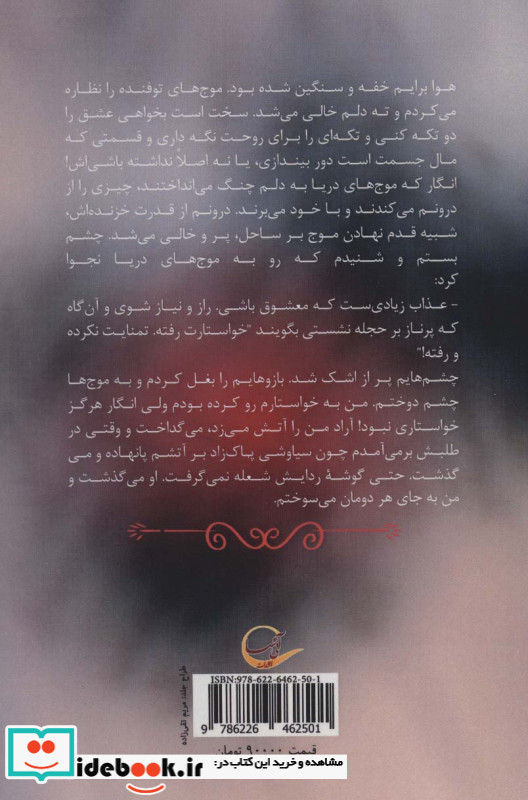 هوا برایم خفه و سنگین شده بود. موج‌های توفنده را نظاره
می‌کردم و ته دلم خالی می‌شد. سخت است بخواهی عشق را
دو تکه کنی و تکه‌ای را برای روحت نگه داری و قسمتی که
مال جسمت است دور بیندازی، یا نه اصلاً نداشته باشی‌اش!
انگار که موج‌های دریا به دلم چنگ می‌انداختند، چیزی را از
درونم می‌کندند و با خود می‌برند. درونم از قدرت خزنده‌اش،
شبیه قدم نهادن موج بر ساحل، پر و خالی می‌شد. چشم
بستم و شنیدم که رو به موج‌های دریا نجوا
کرد:
- عذاب زیادی‌ست که معشوق باشی. راز و نیاز شوی و آن‌گاه
که پرناز بر حجله نشستی بگویند "خواستارت رفته. تمنایت نکرده
و رفته!"
چشم‌هایم پر از اشک شد. بازوهایم را بغل کردم و به موج‌ها
چشم دوختم. من به خواستارم رو کرده بودم ولی انگار هرگز
خواستاری نبود! آراد من را آتش می‌زد، می‌گداخت و وقتی در
طلبش برمی‌آمدم چون سیاوشی پاک‌زاد بر آتشم پانهاده و می
گذشت. حتی گوشهٔ ردایش شعله نمی‌گرفت. او می‌گذشت و
من به جای هر دومان می‌سوختم.
طراح جلد: مریم تقی‌زاده
ISBN:978-622-6462-50-1
9 786226 462501
قیمت ۹۰۰۰۰ تومان
مشاهده و خرید این کتاب در:
idebook.ir